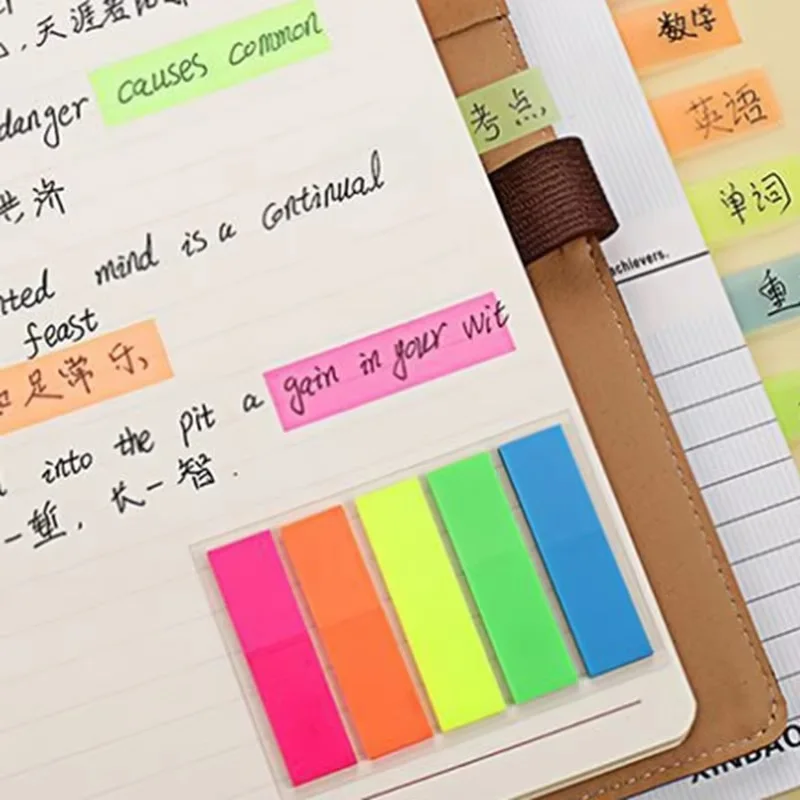 天涯若
danger causes common
共济
mind is a continual
feast
足常乐
into the pit a gain in your wit
一堑，长一智.
考点
数学
英语
单词
重
achievers.
XINBAO